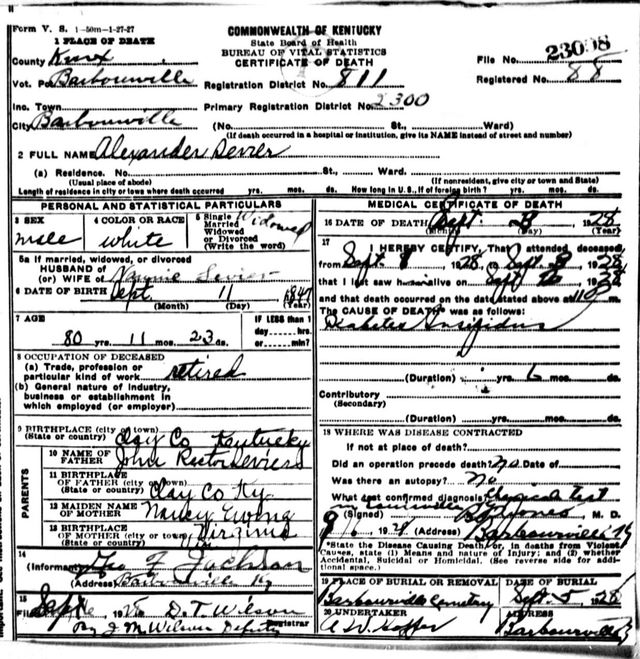 Form V. S. 1-50m-1-27-27
COMMONWEALTH OF KENTUCKY
State Board of Health
BUREAU OF VITAL STATISTICS
CERTIFICATE OF DEATH
1 PLACE OF DEATH
County Knox
File No. 23098
Vot. Barbourville
Registration District No. 811
Registered No. 88
Inc. Town
Primary Registration District No. 2300
City Barbourville (No. St., Ward)
(If death occurred in a hospital or institution, give its NAME instead of street and number)
2 FULL NAME Alexander Sevier
(a) Residence. No. St., Ward.
(Usual place of abode) (If nonresident, give city or town and State)
Length of residence in city or town where death occurred yrs. mos. ds. How long in U. S., if of foreign birth? yrs. mos. ds.
PERSONAL AND STATISTICAL PARTICULARS
3 SEX male
4 COLOR OR RACE white
5 Single Married Widowed or Divorced (Write the word) Widowed
5a If married, widowed, or divorced
HUSBAND of
(or) WIFE of Nannie Sevier
6 DATE OF BIRTH Sept. 11 1847
(Month) (Day) (Year)
7 AGE
80 yrs. 11 mos. 23 ds.
IF LESS than 1 day hrs. or min?
8 OCCUPATION OF DECEASED
(a) Trade, profession or
particular kind of work retired
(b) General nature of Industry,
business or establishment in
which employed (or employer)
9 BIRTHPLACE (city or town)
(State or country) Clay Co Kentucky
PARENTS
10 NAME OF FATHER John
11 BIRTHPLACE OF FATHER (city or town)
(State or country) Clay Co Ky.
12 MAIDEN NAME OF MOTHER Nancy Ewing
13 BIRTHPLACE OF MOTHER (city or town)
(State or country) Virginia
14
(Informant) Geo F Jackson
(Address) Barbourville Ky
15
D. T. Wilson
Registrar
By J M Wilson Deputy
MEDICAL CERTIFICATE OF DEATH
16 DATE OF DEATH Sept. 1928
(Month) (Day) (Year)
17 I HEREBY CERTIFY, That I attended deceased
from Sept. 1928 to Sept. 1928
that I last saw h alive on Sept
and that death occurred on the date stated above at
The CAUSE OF DEATH was as follows:
Diabetes Insipidus
(Duration) yrs. 6 mos. ds.
Contributory
(Secondary)
(Duration) yrs. mos. ds.
18 WHERE WAS DISEASE CONTRACTED
If not at place of death?
Did an operation precede death? no Date of
Was there an autopsy? no
What test confirmed diagnosis? Chemical test
(Signed) Jones M. D.
(Address) Barbourville Ky
State the Disease Causing Death, or, in deaths from Violent
Causes, state (1) Means and nature of Injury; and (2) whether
Accidental, Suicidal or Homicidal. (See reverse side for additional space.)
19 PLACE OF BURIAL OR REMOVAL
Barbourville Cemetery
DATE OF BURIAL
Sept. 5 1928
20 UNDERTAKER
ADDRESS
Barbourville